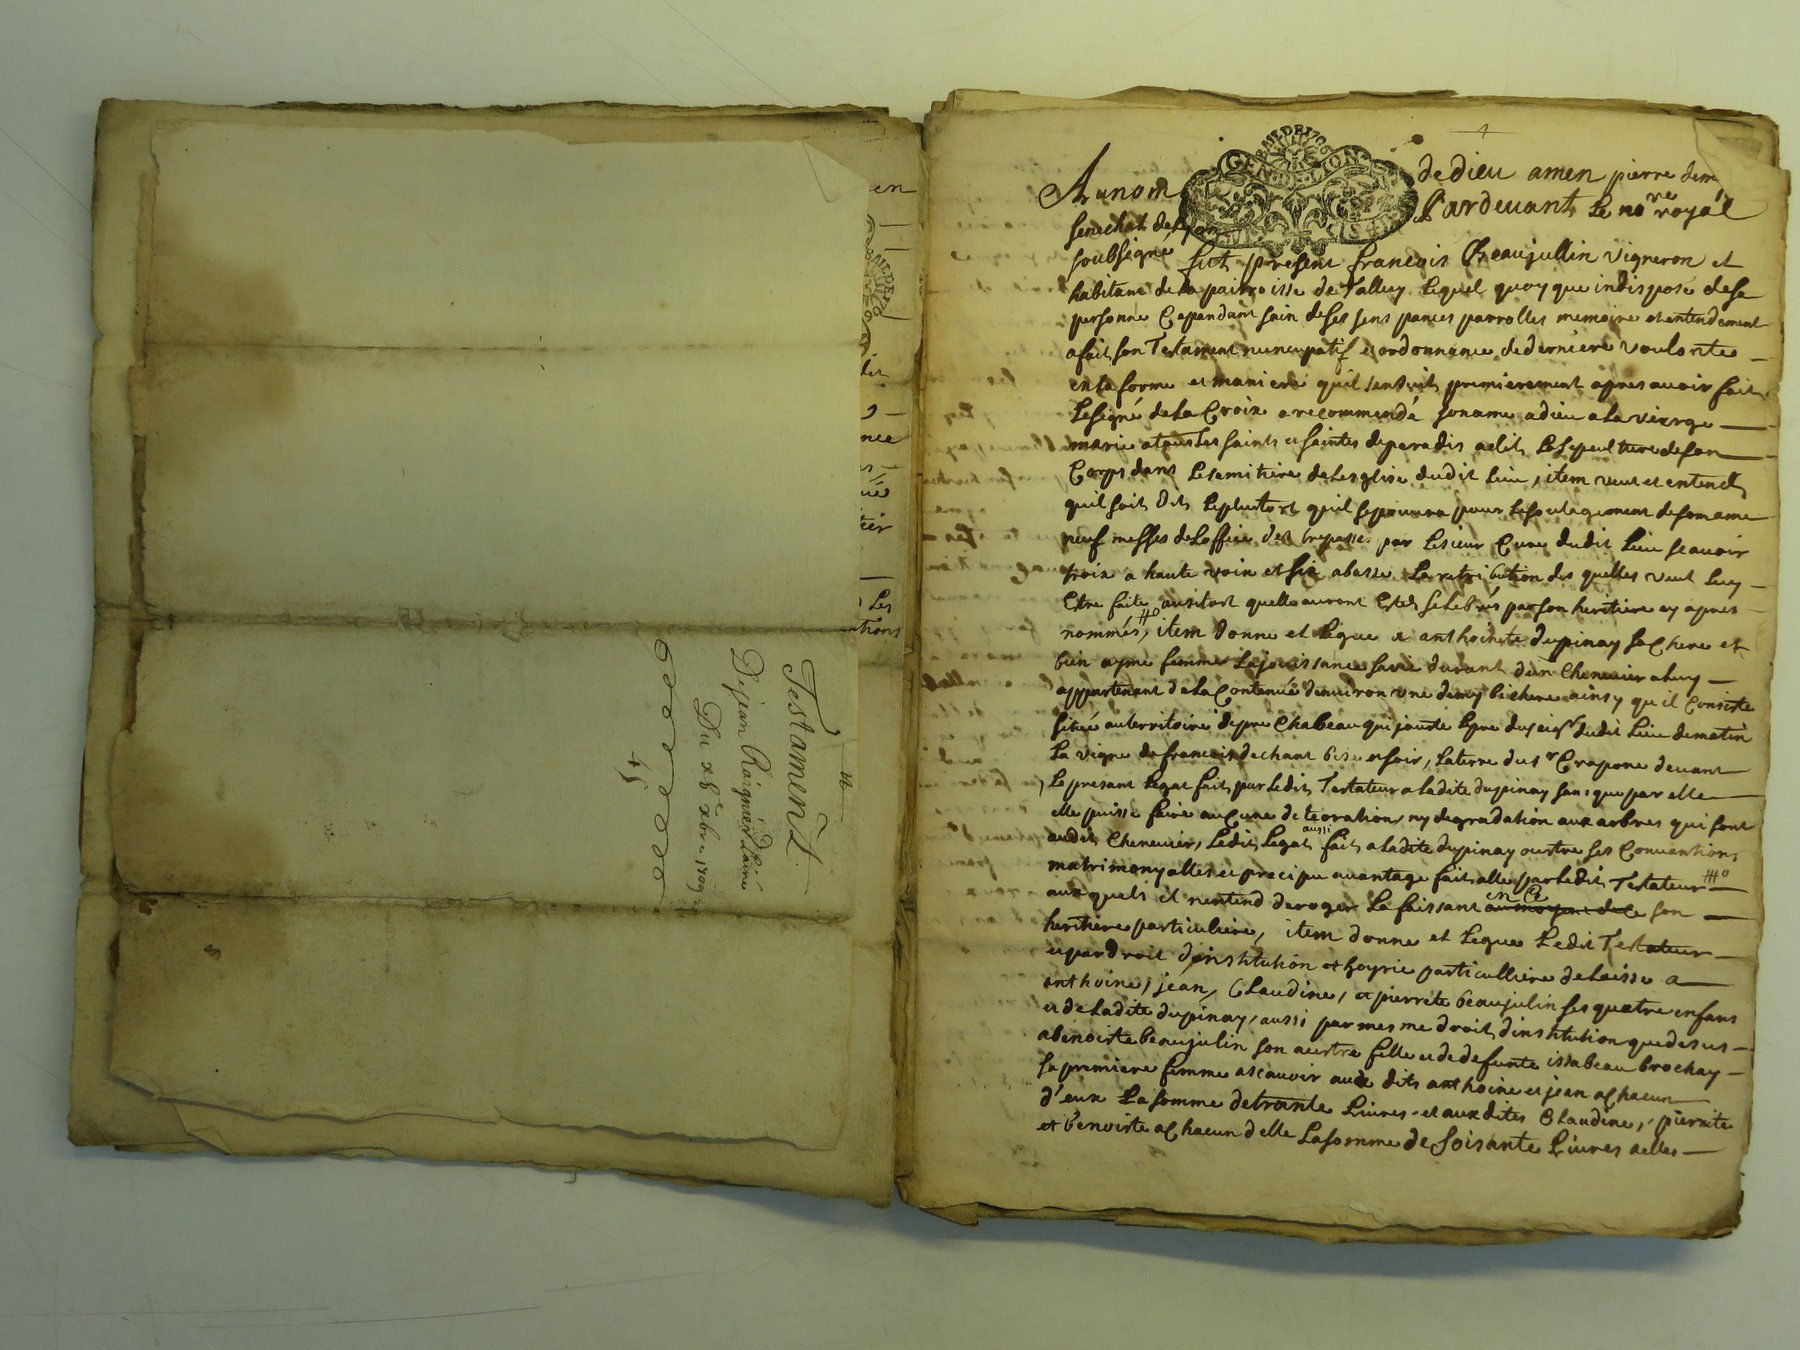 Testament
De jean Raignier Laisné
Du x8e xbre 1709
Au nom de dieu amen
Pardevant Le no.re royal
soubsigné fut present francois Beaujullin vigneron et
habitant de la pairroisse de Talluy Lequel quoy que indisposé de sa
personne Cependant sain de ses sens parolles memoire et entendement
a fait son Testament nuncupatif et ordonnance de derniere voulonte
en la forme et maniere quil sensuit premierement apres avoir fait
Le signe de La Croix a recommendé son ame a dieu a La vierge
marie a tous Les saints et saintes de paradis a elit La sepulture de son
Corps dans Le semitiere de Lesglise dudit Lieu, item veut et entend
quil soit dit Le plustost quil se pourra pour Le soulagement de son ame
neuf messes de Loffice des trepasses par Le sieur Curé dudit Lieu scavoir
trois a haute voix et six a basse La retribution des quelles veut Luy
Estre faite ausitost quelle auront Esté selebrés par son heritiere cy apres
nommés, item donne et Legue a anthoinette dupinay sa Chere et
bien aymé femme La jouissance sa vie durant dun Chenevier a Luy
appartenant de La Contenue denviron une demy bichere ainsy que il Consiste
situé au territoire de pre Chabeau qui jouste Le pre du seigr dudit Lieu de matin
La vigne de francois dechant bise et soir, La terre du sr Crapone devant
, Le presant Legat fait par Ledit Testateur a Ladite dupinay sans que par elle
elle puisse faire auCune deteoration, ny degradation aux arbres qui sont
audit Chenevier, Ledit Legat aussi fait a Ladite dupinay oustre ses Conventions
matrimonyalles et precipu avantage fait elle par Ledit Testateur
aux quels il nentend deroger La faissant en Ce son
heritiere particuliere, item donne et Legue Ledit Testateur
et par droit dinstitution et hoyrie particulliere delaisse a
anthoine, jean, Claudine, et pierrete beaujulin ses quatre enfans
et de Ladite dupinay, aussi par mesme droit dinstitution que desus
a benoiste beaujulin son austre fille et de defunte issabeau brochay
sa premiere femme ascavoir aux dits anthoine et jean a Chacun
d'eux La somme de trante Livres et aux dites Claudine, pierrete
et benoiste a Chacun delle La somme de soisante Livres a elles